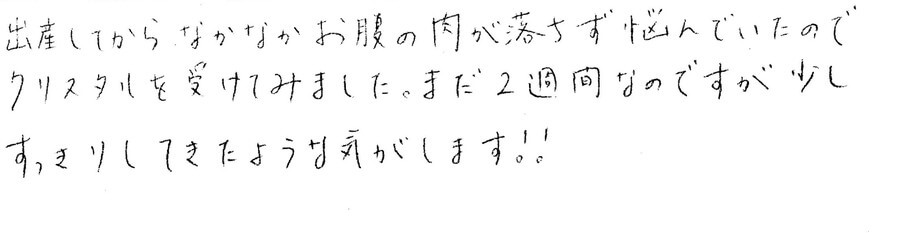 出産してからなかなかお腹の肉が落ちず悩んでいたので
クリスタルを受けてみました。まだ2週間なのですが少し
すっきりしてきたような気がします!!